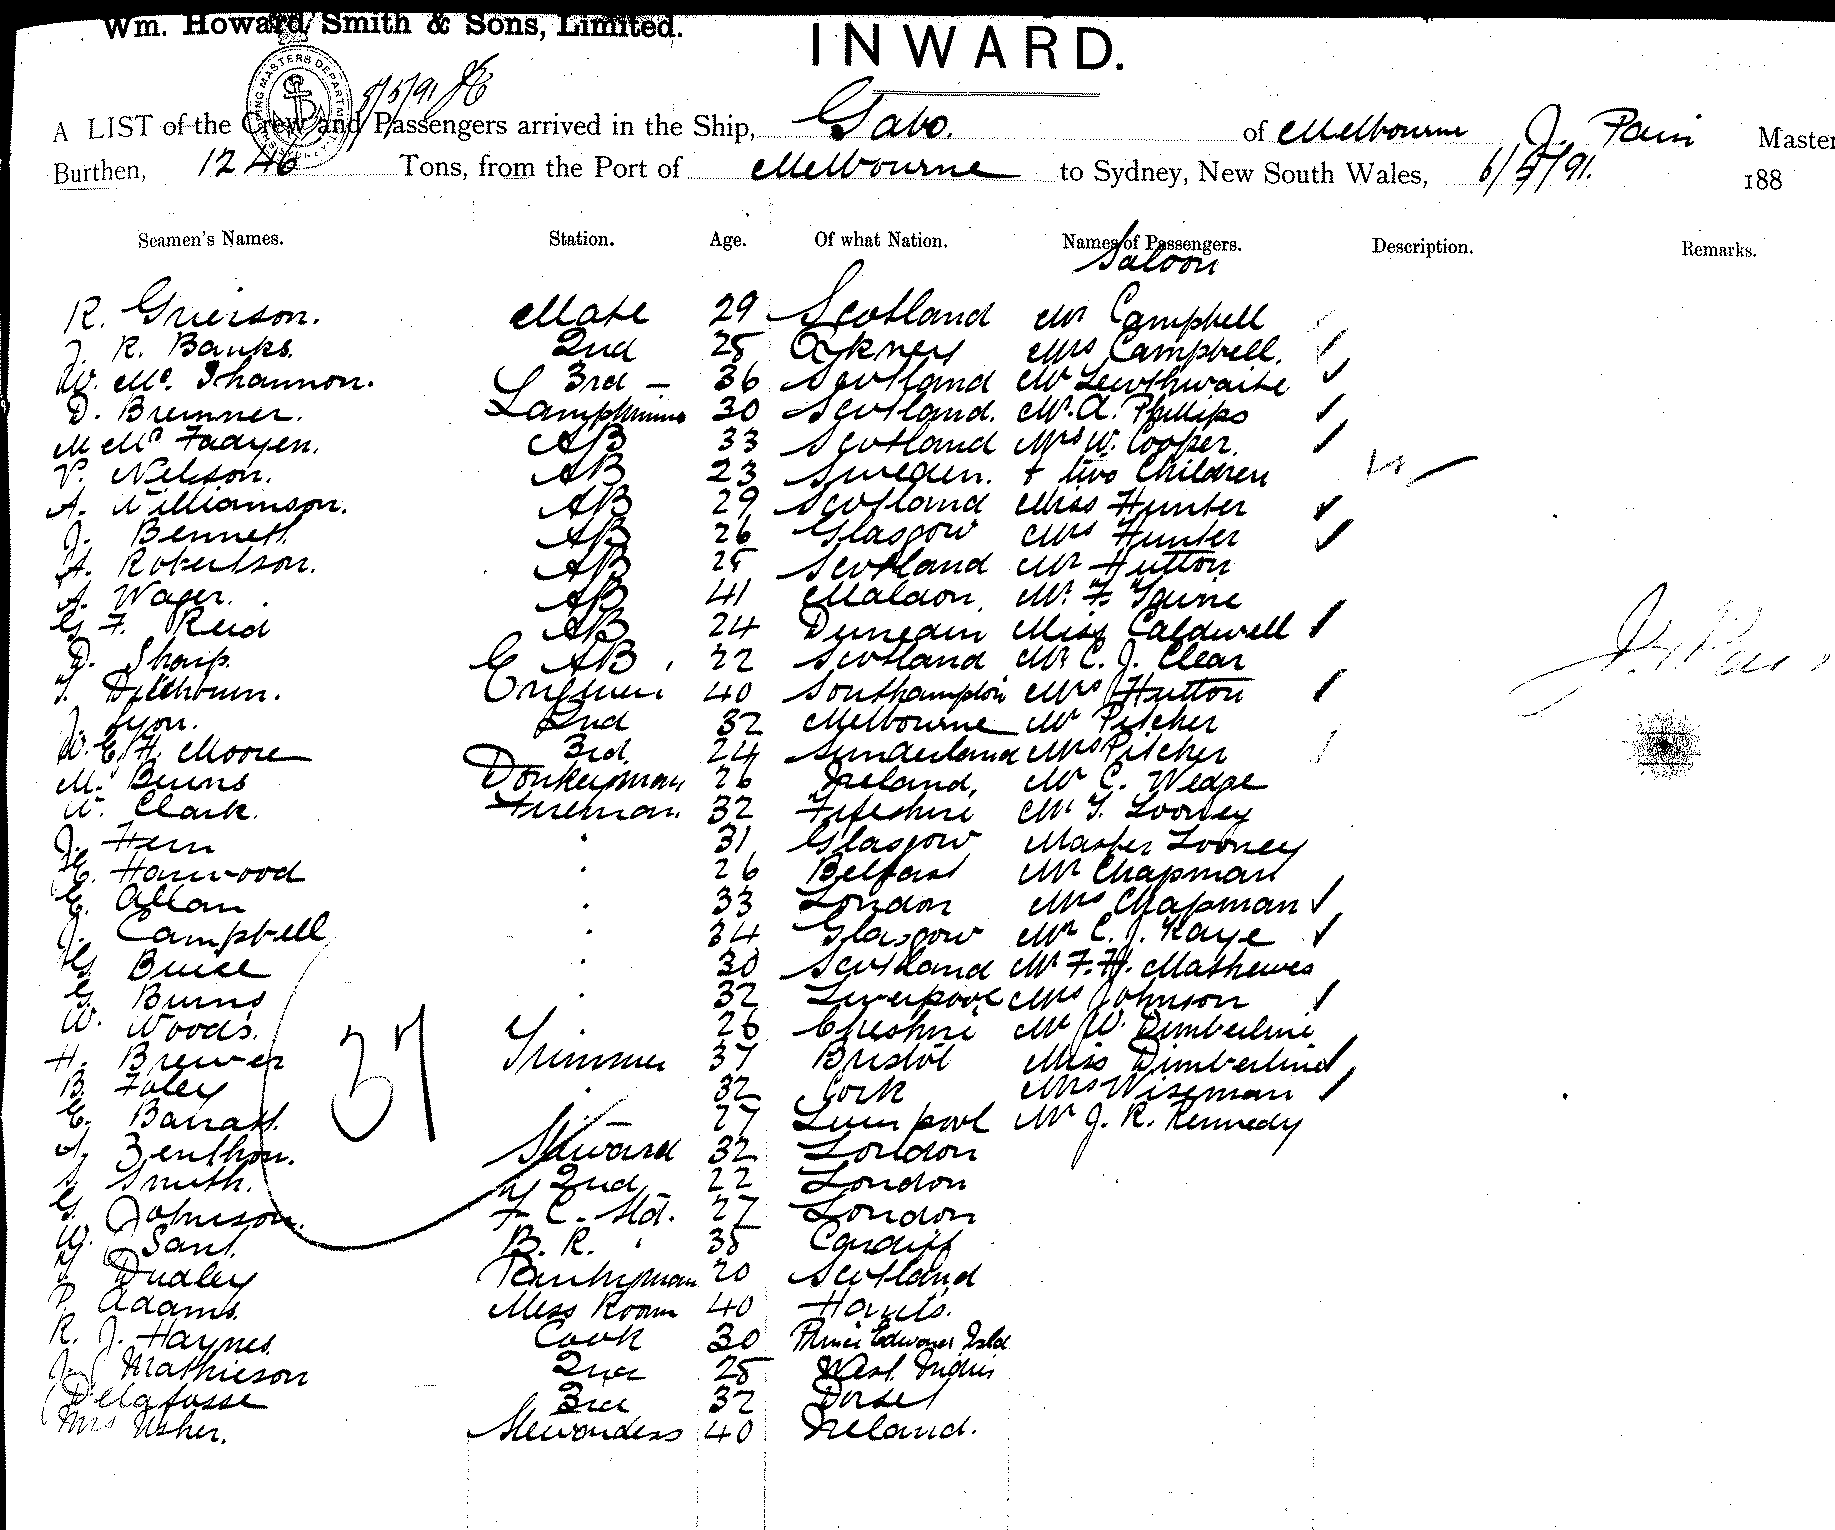 Wm. Howard Smith & Sons, Limited.
INWARD.
5/5/91
A LIST of the Crew and Passengers arrived in the Ship, Gabo. of Melbourne J. Pain Master
Burthen, 1246 Tons, from the Port of Melbourne to Sydney, New South Wales, 6/5/91. 188
Seamen's Names. Station. Age. Of what Nation. Names of Passengers. Description. Remarks.
Saloon
R. Grierson. Mate 29 Scotland Mr Campbell
J. R. Banks. 2nd 25 Orkney Mrs Campbell.
W. Mc. Shannon. 3rd - 36 Scotland Mr Lewthwaite
D. Bremner. Lamptrimmer 30 Scotland. Mr. A. Phillips
M Mc Fadyen. AB 33 Scotland Mrs W. Cooper.
P. Nelson. AB 23 Sweden. + two Children
A. Williamson. AB 29 Scotland Miss Hunter
J. Bennett. AB 26 Glasgow Mrs Hunter
A. Robertson. AB 25 Scotland Mr Hutton
A. Wager. AB 41 Maldon, Mr. F.
G. F. Reid AB 24 Dunedin Miss Caldwell
D. Sharp. AB 22 Scotland Mr C. J. Clear
40 Southampton Mrs Hutton
J. Lyon. 2nd 32 Melbourne Mr Pitcher
W. E. H. Moore 3rd 24 Sunderland Mrs Pitcher
M. Burns Donkeyman 26 Ireland, Mr C. Wedge
W. Clark. Fireman. 32 Fifeshire Mr T. Looney
J. Hern 31 Glasgow Master Looney
H. Harwood 26 Belfast Mr Chapman
E. Allan 33 London Mrs Chapman
J. Campbell 34 Glasgow Mr C. J. Kaye
G. Buice 30 Scotland Mr F. H. Mathewes
G. Burns 32 Liverpool Mrs Johnson
W. Woods. 26 Cheshire Mr W. Dimberline
H. Brewer Trimmer 37 Bristol Miss Dimberline
B. Foley 32 Cork Mrs Wiseman
E. Barratt. 27 Liverpool Mr J. R. Kennedy
37
A. Zenthon. Steward 32 London
S. Smith. 2nd 22 London
G. Johnson. F. C. Std. 27 London
W. Sant. B. R. 35 Cardiff
Dudley Pantryman 20 Scotland
P. Adams. Mess Room 40 Hants.
R. J. Haynes Cook 30 Prince Edward Isld
J. Mathieson 2nd 25 West Indies
Delafosse 3rd 32 Dorset
Mrs Usher. Stewardess 40 Ireland.
J. Pain